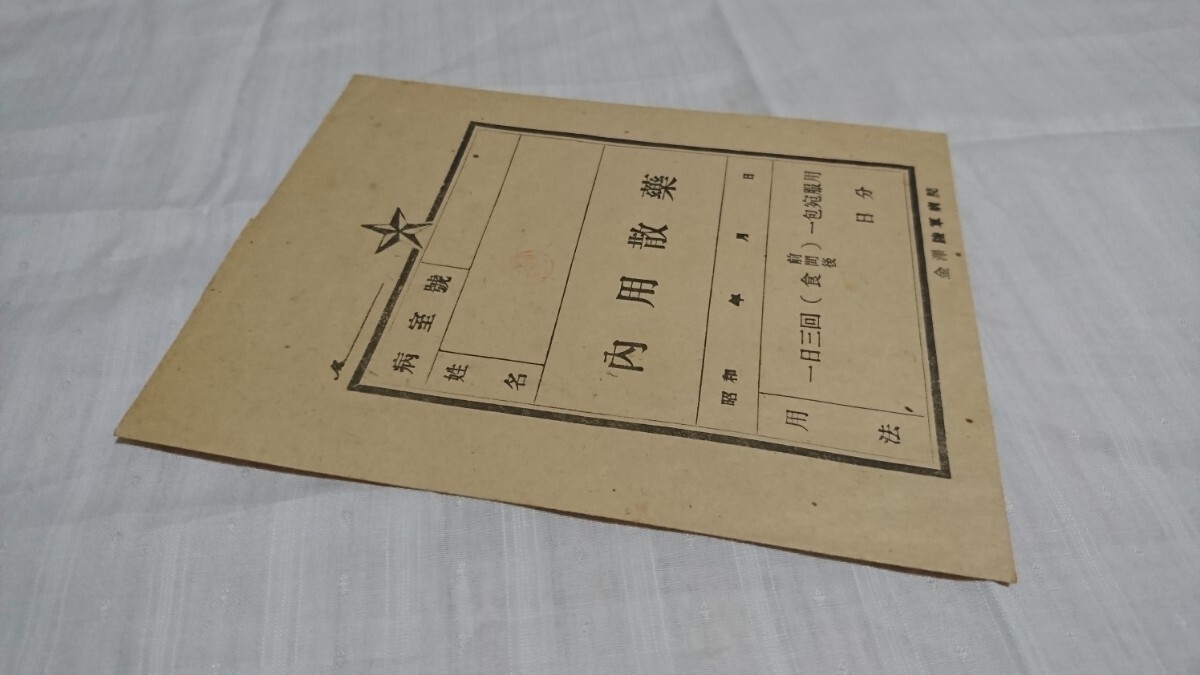 病室號
姓名
內用散藥
昭和 年 月 日
用法
一日三回（食前間後）一包宛服用
日分
金澤陸軍病院